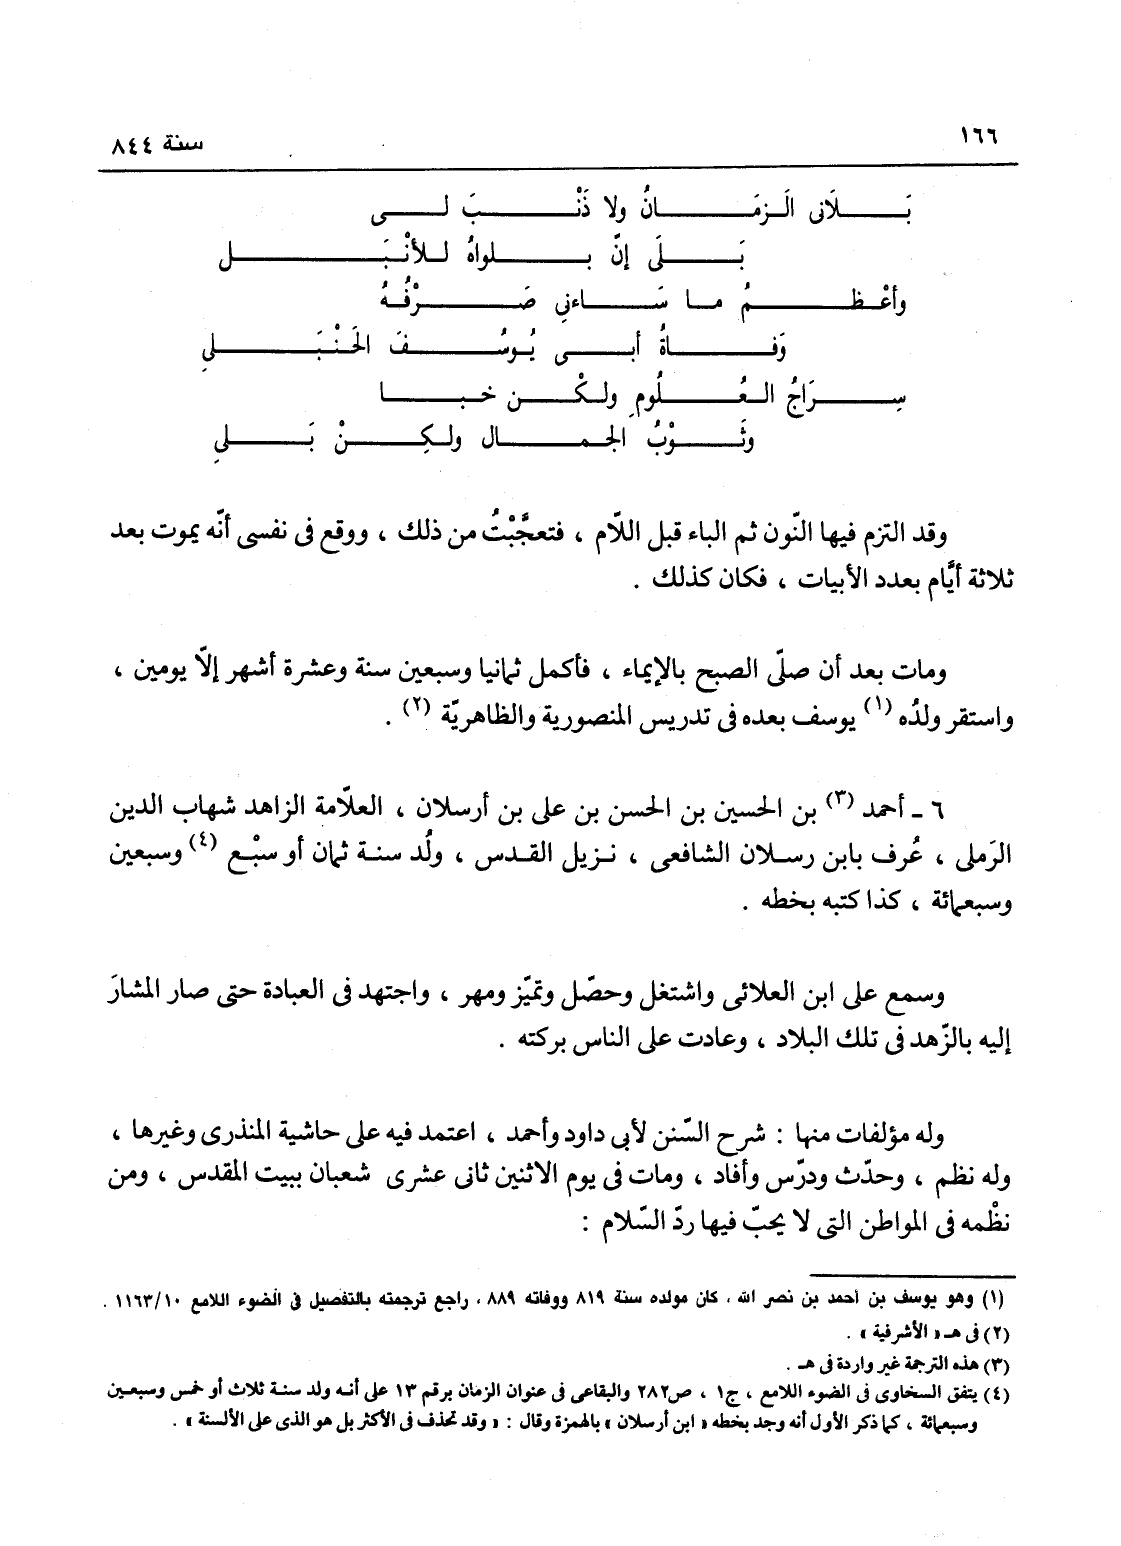 ١٦٦
سنة ٨٤٤
بَلَانى الَزمَانُ ولا ذَنْبَ لى
بَلَى إنّ بلواهُ للأنْبَل
وأعْظمُ ما سَاءنىِ صَرْفُهُ
وَفاةُ أبى يُوسُفَ الحَنْبَلىِ
سِرَاجُ العُلُومِ ولكْن خبا
وثَوْبُ الجمال ولكِنْ بَلىِ
وقد التزم فيها النّون ثم الباء قبل اللّام ، فتعجَّبْتُ من ذلك ، ووقع فى نفسى أنّه يموت بعد
ثلاثة أيَّام بعدد الأبيات ، فكان كذلك .
ومات بعد أن صلّى الصبح بالإيماء ، فأكمل ثمانيا وسبعين سنة وعشرة أشهر إلّا يومين ،
واستقر ولدُه (١) يوسف بعده فى تدريس المنصورية والظاهريّة (٢) .
٦ ـ أحمد (٣) بن الحسين بن الحسن بن على بن أرسلان ، العلّامة الزاهد شهاب الدين
الرَملى ، عُرف بابن رسلان الشافعى ، نزيل القدس ، ولُد سنة ثمان أو سبْع (٤) وسبعين
وسبعمائة ، كذا كتبه بخطه .
وسمع على ابن العلائى واشتغل وحصّل وتميّز ومهر ، واجتهد فى العبادة حتى صار المشارَ
إليه بالزّهد فى تلك البلاد ، وعادت على الناس بركته .
وله مؤلفات منها : شرح السّنن لأبى داود وأحمد ، اعتمد فيه على حاشية المنذرى وغيرها ،
وله نظم ، وحدّث ودرّس وأفاد ، ومات فى يوم الاثنين ثانى عشرى شعبان ببيت المقدس ، ومن
نظْمه فى المواطن التى لا يحبّ فيها ردّ السّلام :
(١) وهو يوسف بن أحمد بن نصر الله ، كان مولده سنة ٨١٩ ووفاته ٨٨٩ ، راجع ترجمته بالتفصيل فى الضوء اللامع ١١٦٣/١٠ .
(٢) فى هـ « الأشرفية » .
(٣) هذه الترجمة غير واردة فى هـ .
(٤) يتفق السخاوى فى الضوء اللامع ، ج١ ، ص٢٨٢ والبقاعى فى عنوان الزمان برقم ١٣ على أنه ولد سنة ثلاث أو خمس وسبعين
وسبعمائة ، كما ذكر الأول أنه وجد بخطه « ابن أرسلان » بالهمزة وقال : « وقد تحذف فى الأكثر بل هو الذى على الألسنة » .